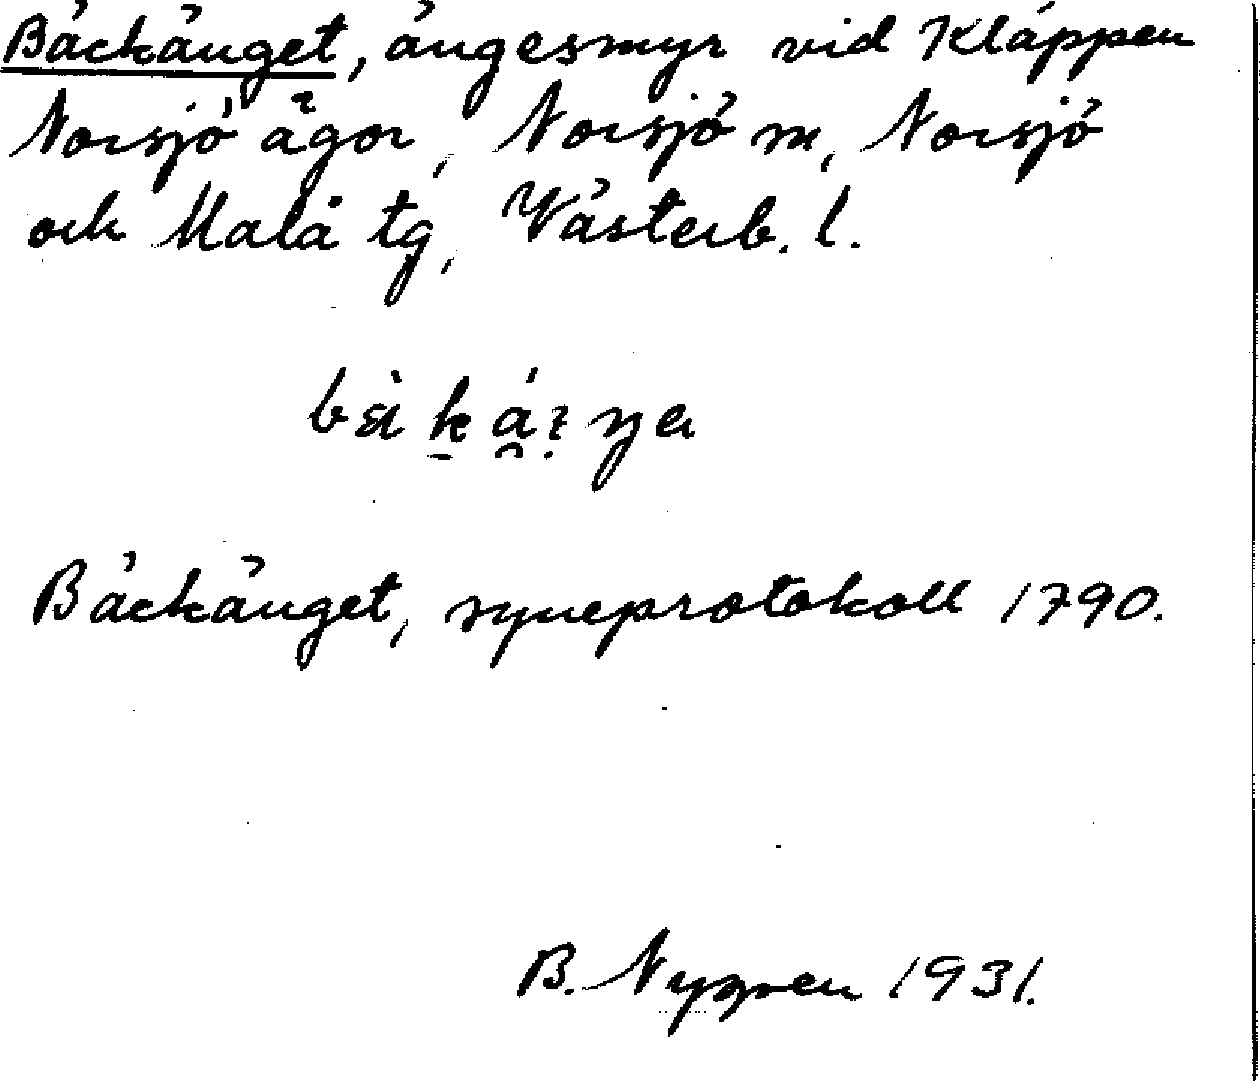 Bäckänget, ängesmyr vid Kläppen
Norsjö ägor, Norsjö sn, Norsjö
och Malå tg, Västerb. l.
Bäckänget, syneprotokoll 1790.
B. Nygren 1931.